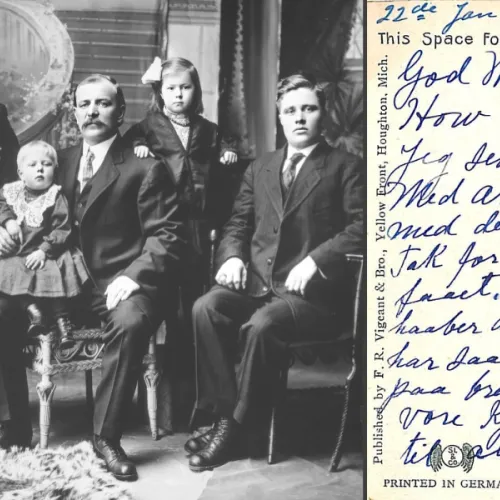 22de Jan
This Space Fo
God
How
Jeg
Med a
med de
Tak for
faaet
haaber
har saa
paa
vore
til
Published by F. R. Vigeant & Bro., Yellow Front, Houghton, Mich.
SL & Co
PRINTED IN GERMA